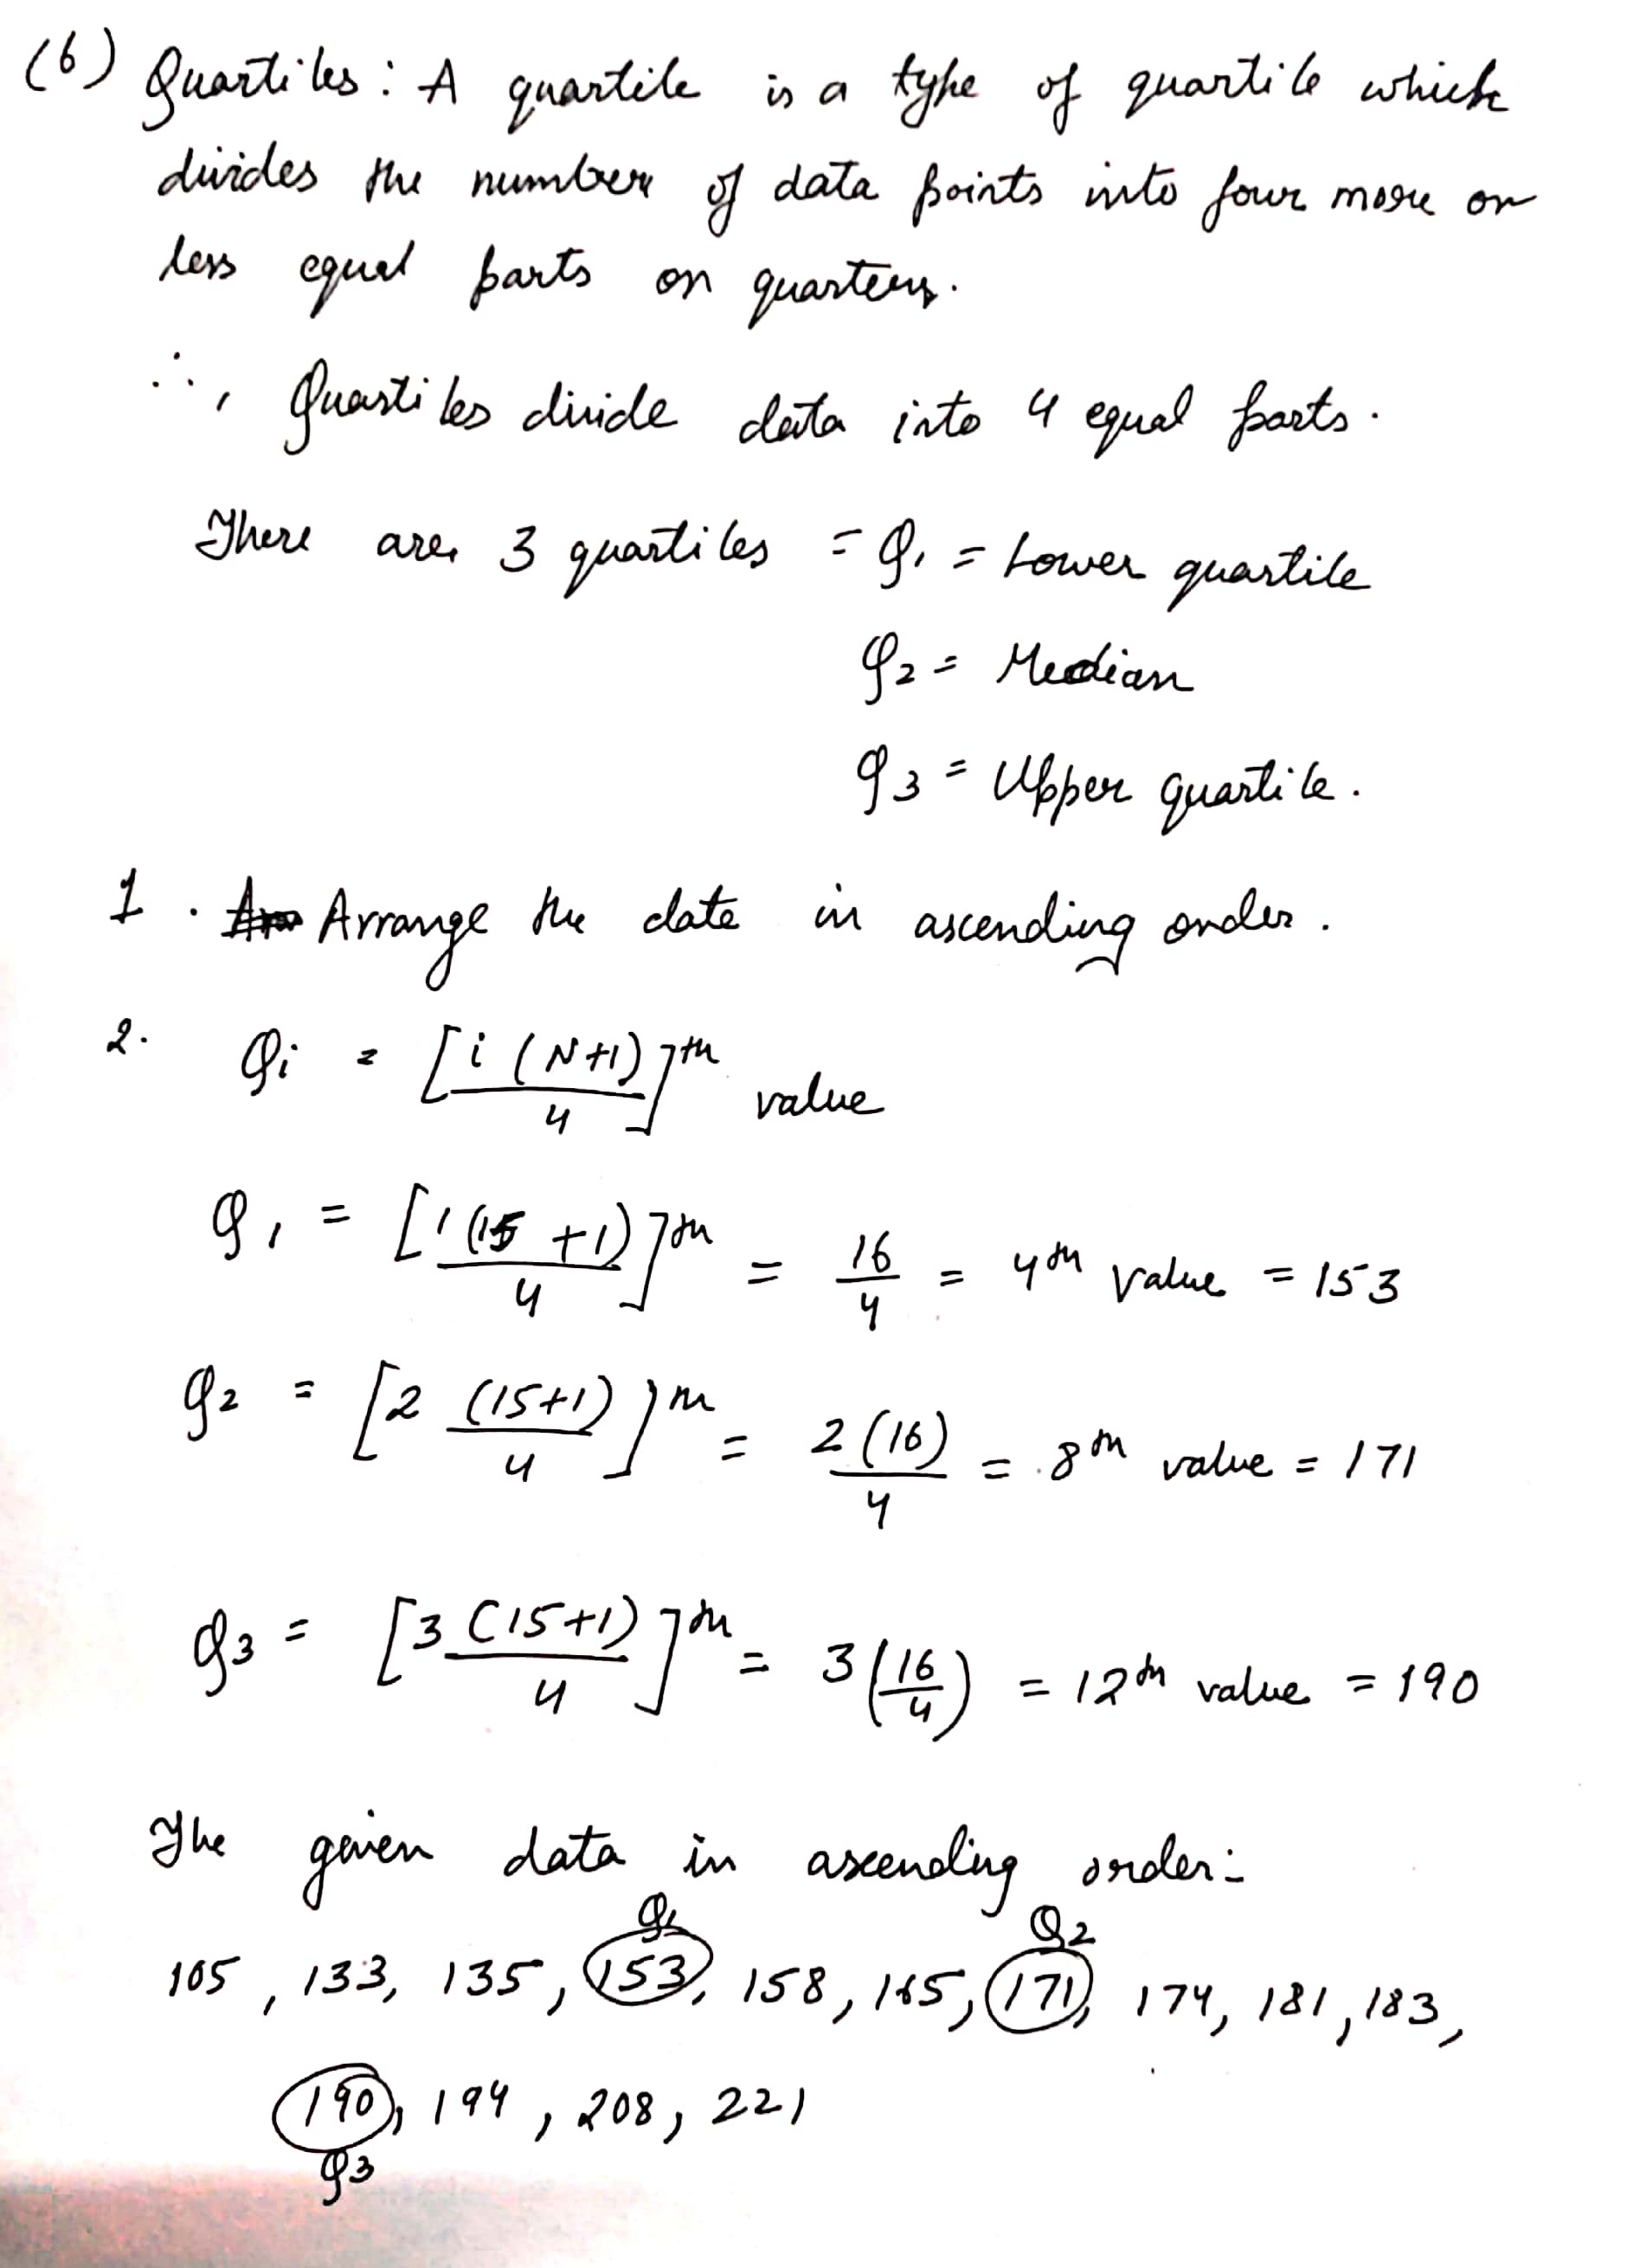 (6) Quartiles : A quartile is a type of quartile which
divides the number of data points into four more or
less equal parts or quarters.
∴, Quartiles divide data into 4 equal parts.
There are 3 quartiles = Q1 = Lower quartile
Q2 = Median
Q3 = Upper quartile.
1. Arrange the data in ascending order.
2. Qi = [i (N+1)/4]th value
Q1 = [1 (15 +1)/4]th = 16/4 = 4th value = 153
Q2 = [2 (15+1)/4]th = 2(16)/4 = 8th value = 171
Q3 = [3 (15+1)/4]th = 3(16/4) = 12th value = 190
The given data in ascending order:-
Q1 Q2
105, 133, 135, 153, 158, 165, 171, 174, 181, 183,
190, 194, 208, 221
Q3